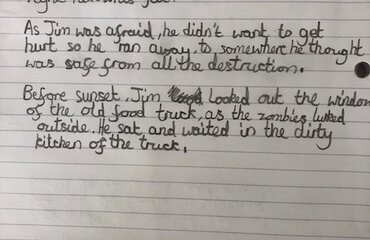 As Jim was afraid, he didn't want to get
hurt so he ran away to somewhere he thought
was safe from all the destruction.
Before sunset, Jim looked out the window
of the old food truck, as the zombies lurked
outside. He sat and waited in the dirty
kitchen of the truck.